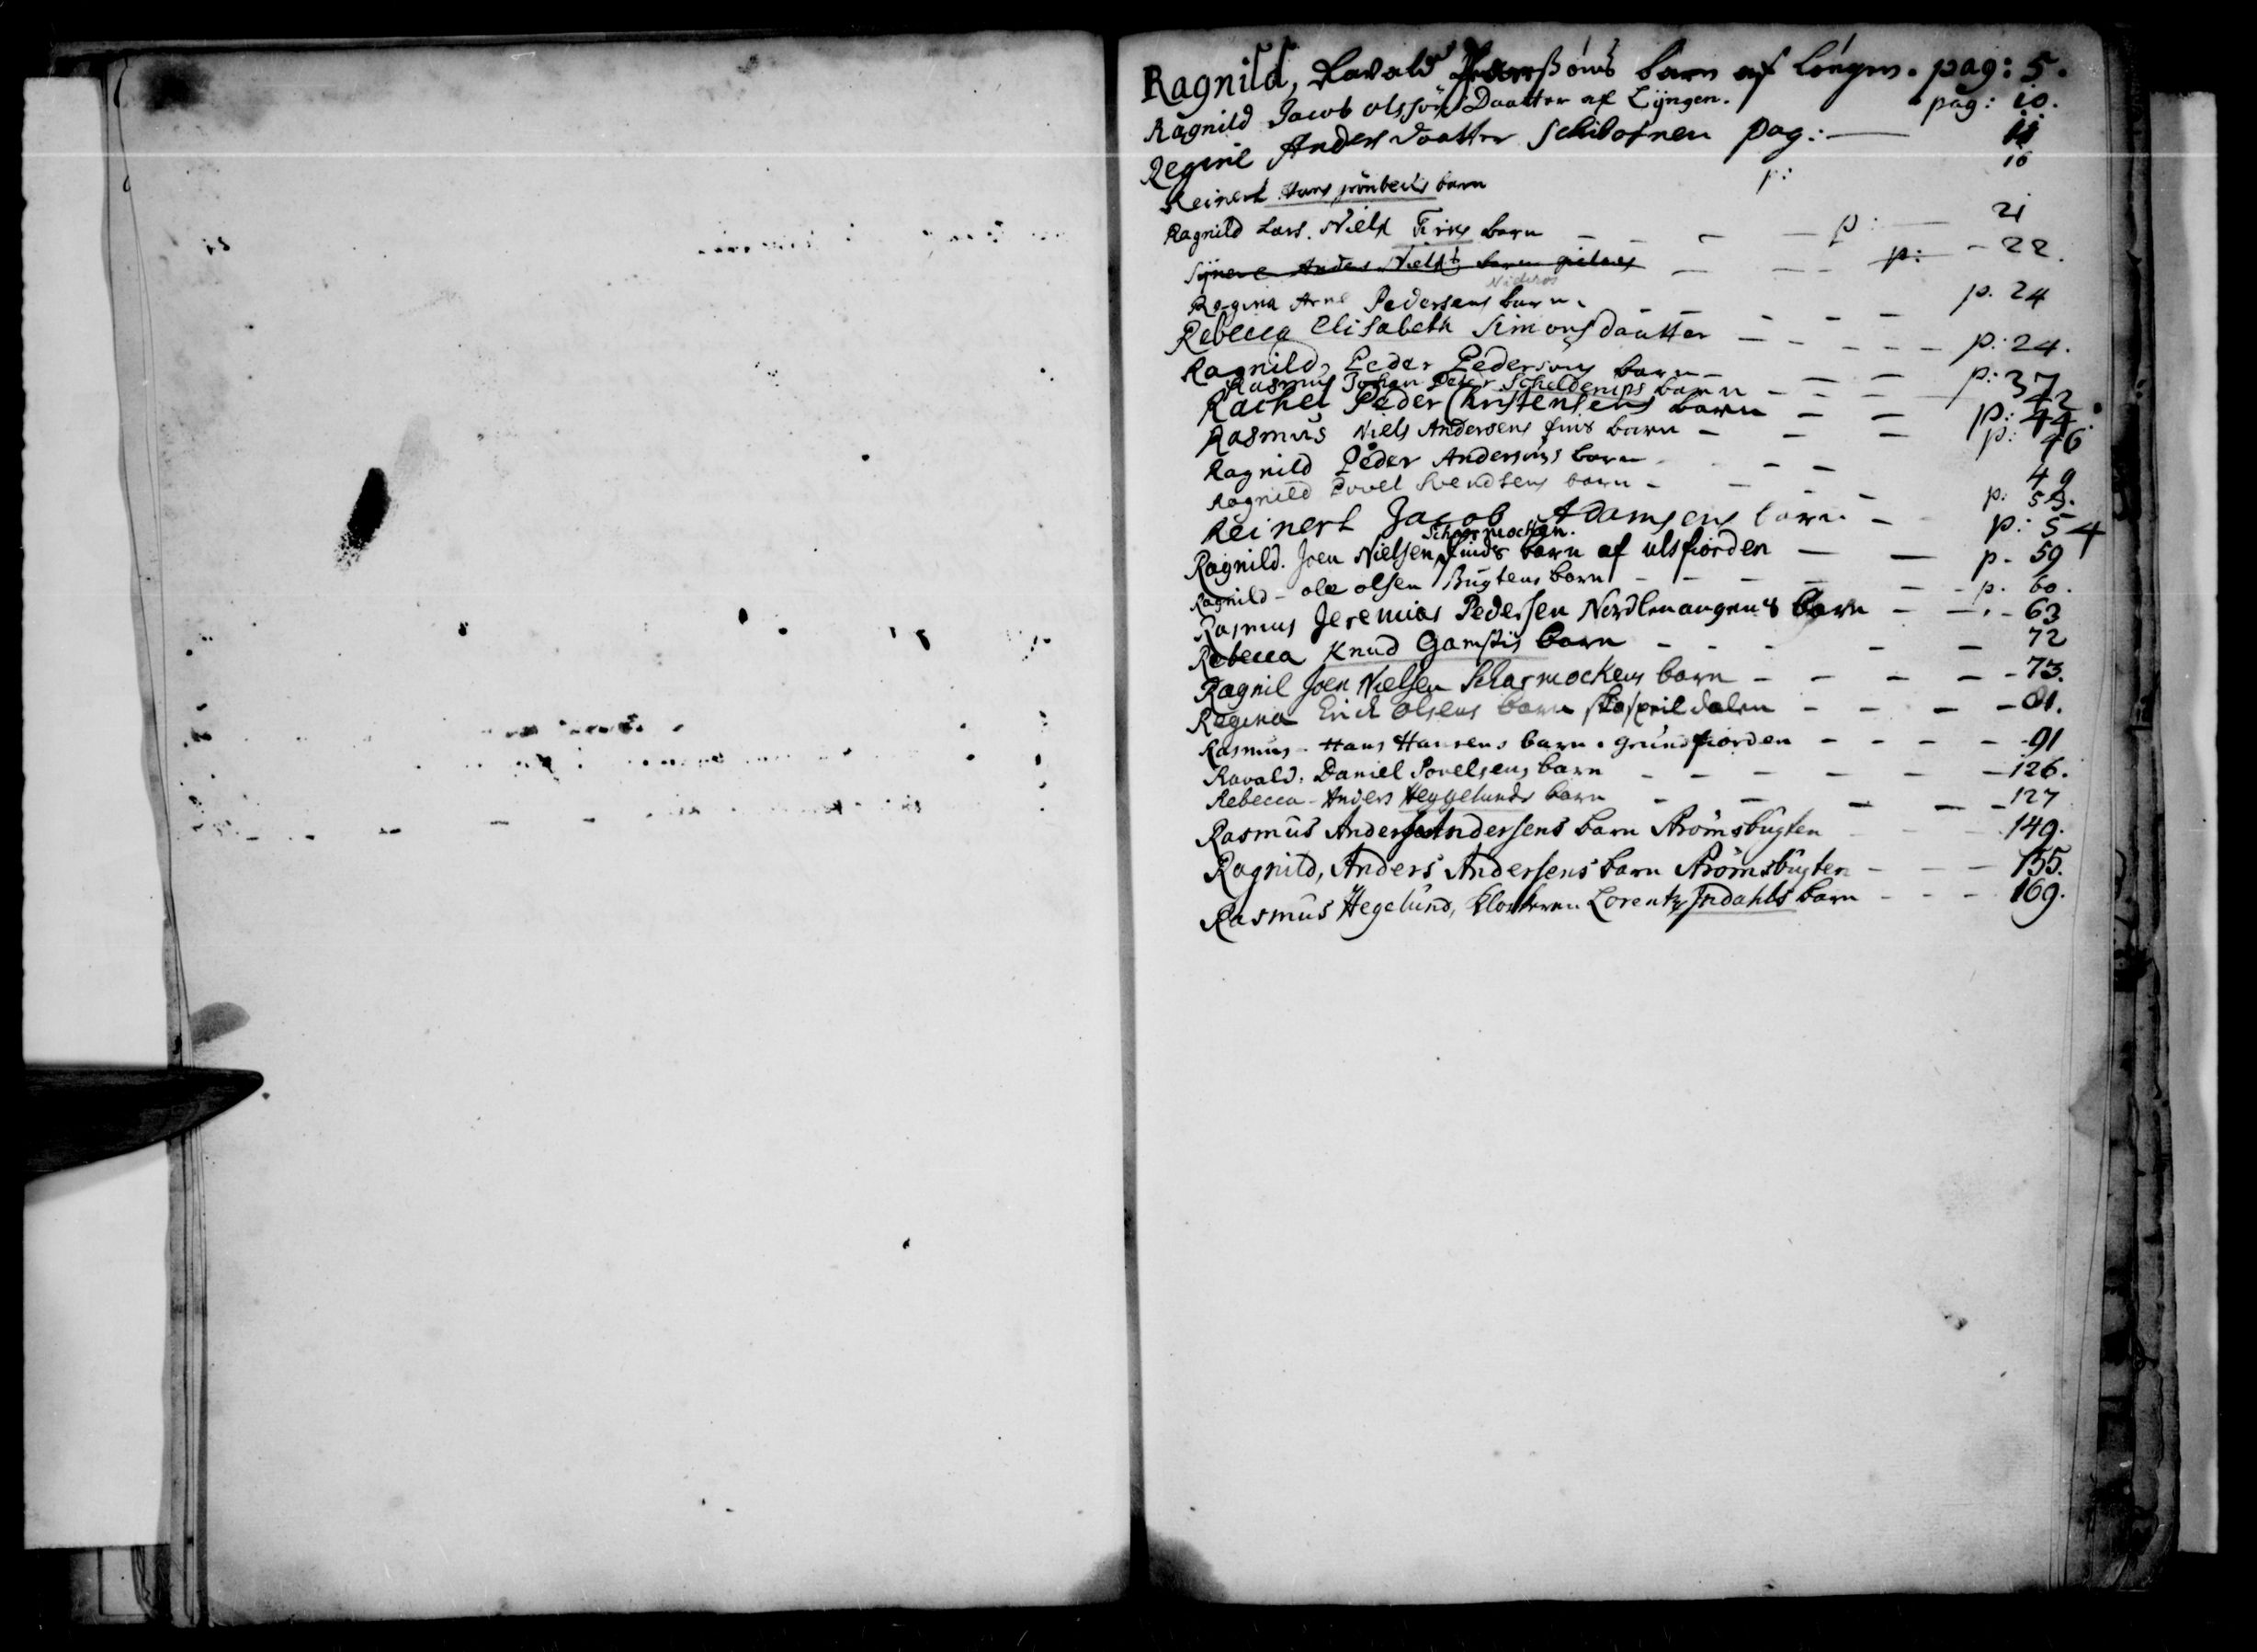 Ragnild, Ravald barn af Lóngen. pag: 5.
Ragnild Jacob olssøn Daatter af Lÿngen. pag: io.
Regnil Anders daatter Schibotnen pag: — ii
Reinert Hans barn p: 16
Ragnild Lars. Niels barn — — — — p: — 21
Anders Niels barn — — — p: — 22.
Regina Arne Pedersens barn — — — — — p. 24
Rebecca Elisabeth Simonsdaatter — — — — — p: 24.
Ragnild, Peder Pedersøns barn — — — p: 37
Rasmus Johan Peter Schelderups barn — — — 42.
Rachel Peder Christensens barn — — p: 44.
Rasmus Niels Andersens fins barn — — — p: 46
Ragnild Peder Andersøns barn — — — 49
Ragnild Povel Svendsens barn — — — — p: 53.
Reinert Jacob Adamsens barn — p: 54
Schar mocken.
Ragnild. Joen Nielsen finds barn af ulsfiorden — — p. 59
Ragnild — ole olsen Bugtens barn — — — — — p. 60.
Rasmus Jeremias Pedersen Nordlenangens barn — — 63
Rebecca Knud Gamsiis barn — — — — — 72
Ragnil Joen Nielsen Scharmockens barn — — — — 73.
Regina Erick olsens barn — — — — 81.
Rasmus — Hans Hansens barn. Grundfiorden — — — — 91
Ravald. Daniel Povelsens barn — — — — — — 126.
Rebecca — Anders Heggelunds barn — — — — — 127
Rasmus Anders Andersens barn Strømsbugten — — — 149.
Ragnild, Anders Andersens barn Strømsbugten — — — 155.
Rasmus Hegelund, Klockeren Lorentz Indahls barn — — — 169.